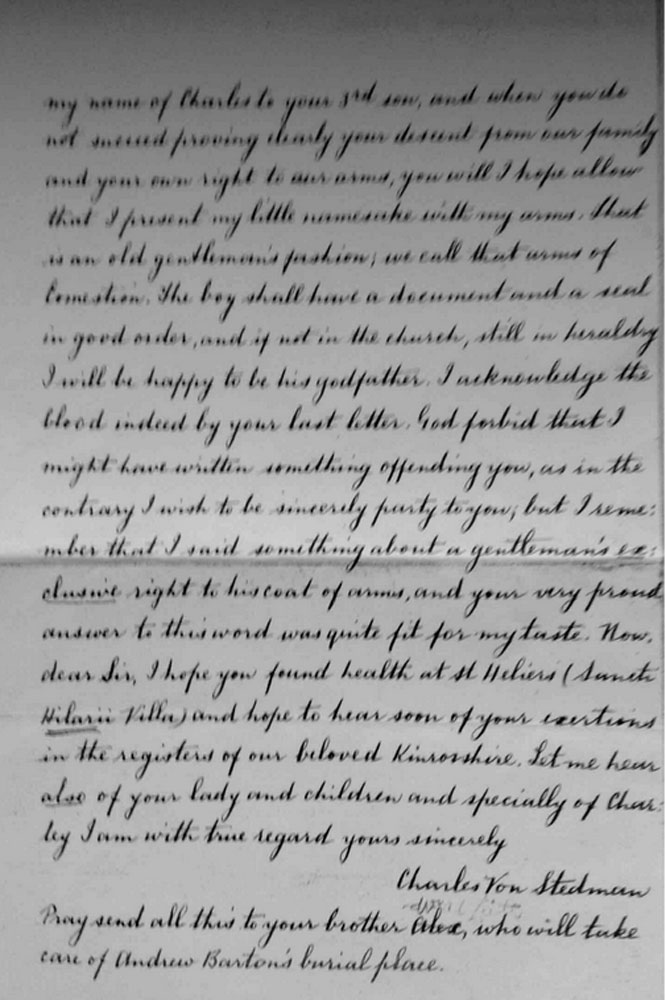 my name of Charles to your 3rd son, and when you do
not succeed proving clearly your descent from our family
and your own right to our arms, you will I hope allow
that I present my little namesake with my arms. That
is an old gentleman's fashion; we call that arms of
Comestion. The boy shall have a document and a seal
in good order, and if not in the church, still in heraldry
I will be happy to be his godfather. I acknowledge the
blood indeed by your last letter. God forbid that I
might have written something offending you, as in the
contrary I wish to be sincerely party to you; but I reme:
mber that I said something about a gentleman's ex:
clusive right to his coat of arms, and your very proud
answer to this word was quite fit for my taste. Now,
dear Sir, I hope you found health at St Heliers (Sancti
Hilarii Villa) and hope to hear soon of your exertions
in the registers of our beloved Kinrosshire. Let me hear
also of your lady and children and specially of Char:
ley I am with true regard yours sincerely
Charles Von Stedman
Pray send all this to your brother Alex, who will take
care of Andrew Barton's burial place.